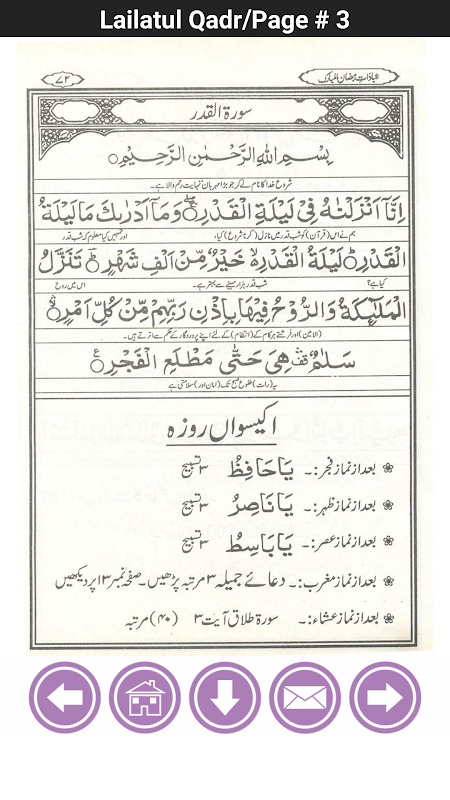 Lailatul Qadr/Page # 3
عبادات رمضان المبارک
۷۲
سورة القدر
بِسْمِ اللهِ الرَّحْمٰنِ الرَّحِيْمِ ○
شروع خدا کا نام لے کر جو بڑا مہربان نہایت رحم والا ہے۔
اِنَّآ اَنْزَلْنٰهُ فِیْ لَيْلَةِ الْقَدْرِ ○ وَمَآ اَدْرٰىكَ مَا لَيْلَةُ
ہم نے اس (قرآن) کو شب قدر میں نازل (کرنا شروع) کیا، اور تمہیں کیا معلوم کہ شب قدر
الْقَدْرِ ○ لَيْلَةُ الْقَدْرِ ۙ خَيْرٌ مِّنْ اَلْفِ شَهْرٍ ○ تَنَزَّلُ
کیا ہے؟ شب قدر ہزار مہینے سے بہتر ہے۔ اس میں روح
الْمَلٰٓئِكَةُ وَالرُّوْحُ فِيْهَا بِاِذْنِ رَبِّهِمْ مِّنْ كُلِّ اَمْرٍ ○
(الامین) اور فرشتے ہر کام کے (انتظام) کے لئے اپنے پروردگار کے حکم سے اترتے ہیں۔
سَلٰمٌ هِیَ حَتّٰى مَطْلَعِ الْفَجْرِ ○
یہ (رات) طلوع صبح تک (امان اور) سلامتی ہے
اکیسواں روزہ
بعد از نماز فجر:۔ يَا حَافِظُ ۳ تسبیح
بعد از نماز ظہر:۔ يَا نَاصِرُ ۳ تسبیح
بعد از نماز عصر:۔ يَا بَاسِطُ ۳ تسبیح
بعد از نماز مغرب:۔ دعائے جمیلہ ۳ مرتبہ پڑھیں۔ صفحہ نمبر ۱۳ پر دیکھیں
بعد از نماز عشاء:۔ سورة طلاق آیت ۳ (۴۰) مرتبہ